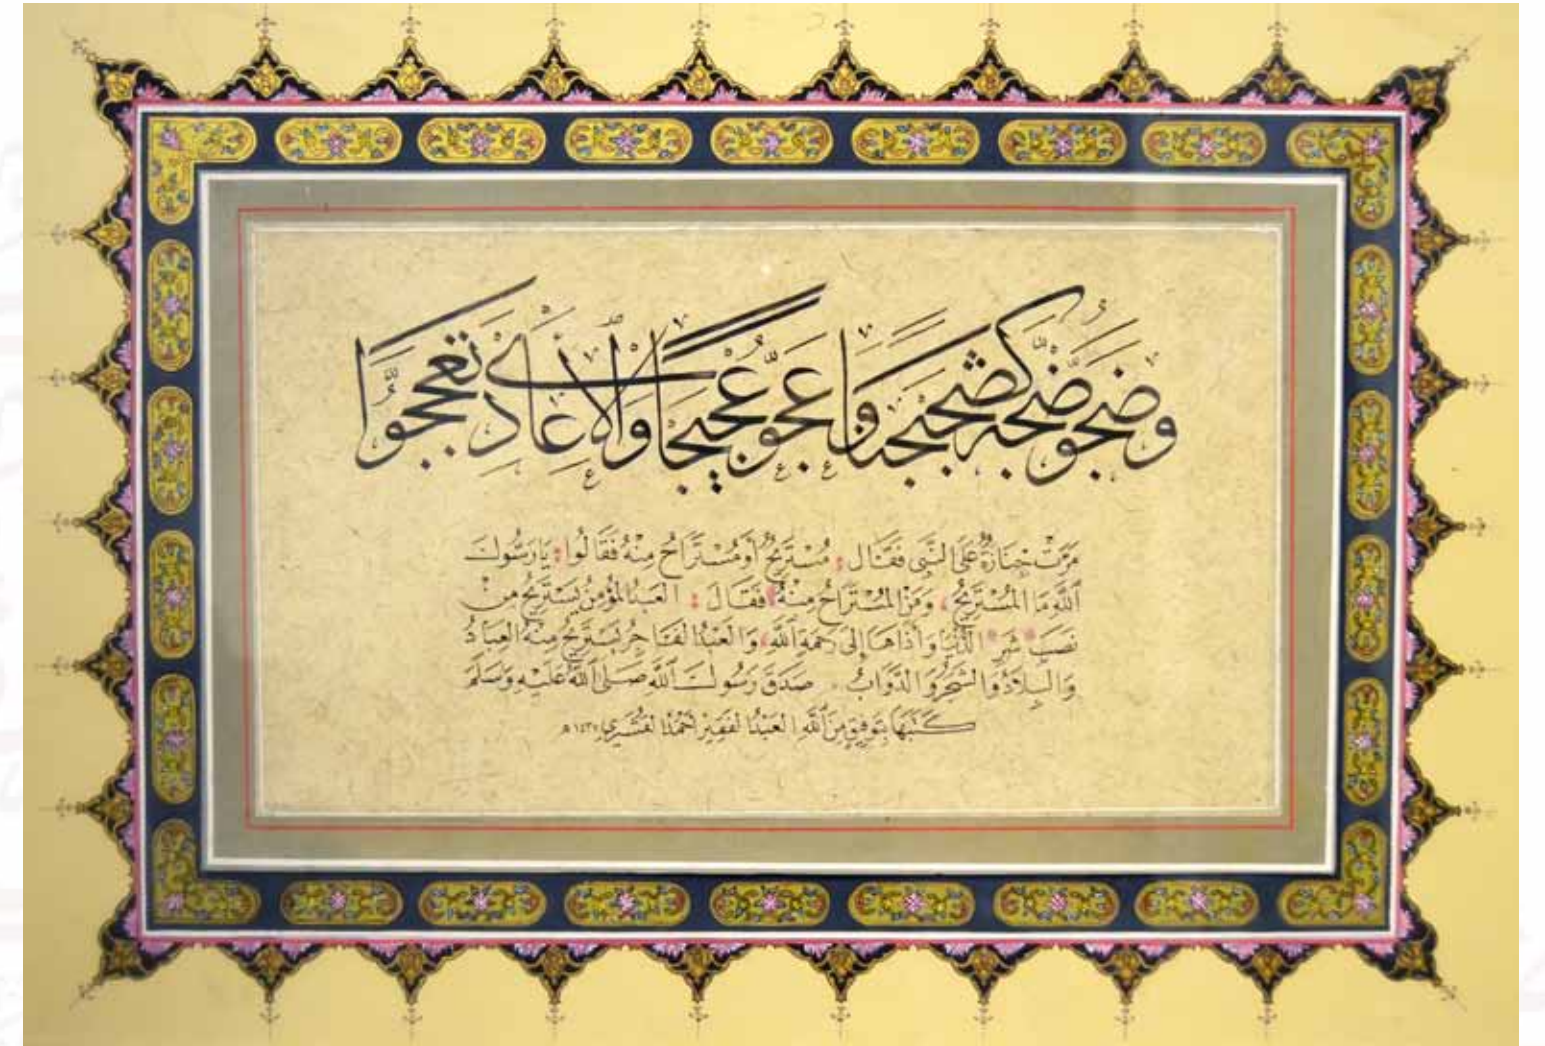 وَضَجُّوا ضَجَّةً كَضَجِيجِنَا وَاعِجُّوا عَجِيجًا وَالْأَعَادِي تَعَجَّجُوا
مَرَّتْ جِنَازَةٌ عَلَى النَّبِيِّ فَقَالَ : مُسْتَرِيحٌ أَوْ مُسْتَرَاحٌ مِنْهُ فَقَالُوا : يَا رَسُولَ
اللَّهِ مَا الْمُسْتَرِيحُ ، وَمَنِ الْمُسْتَرَاحُ مِنْهُ فَقَالَ : الْعَبْدُ الْمُؤْمِنُ يَسْتَرِيحُ مِنْ
نَصَبِ شَرِّ الدُّنْيَا وَأَذَاهَا إِلَى رَحْمَةِ اللَّهِ ، وَالْعَبْدُ الْفَاجِرُ يَسْتَرِيحُ مِنْهُ الْعِبَادُ
وَالْبِلَادُ وَالشَّجَرُ وَالدَّوَابُّ . صَدَقَ رَسُولُ اللَّهِ صَلَّى اللَّهُ عَلَيْهِ وَسَلَّمَ
كَتَبَهَا بِتَوْفِيقٍ مِنَ اللَّهِ الْعَبْدُ الْفَقِيرُ أَحْمَدُ